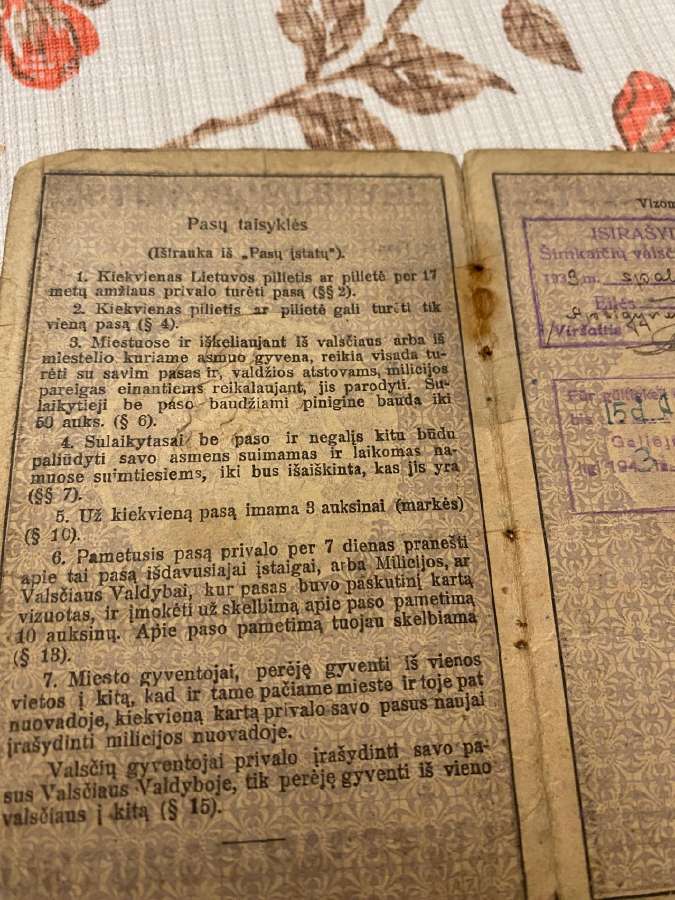 Pasų taisyklės
(Ištrauka iš „Pasų įstatų").
1. Kiekvienas Lietuvos pilietis ar pilietė per 17
metų amžiaus privalo turėti pasą (§§ 2).
2. Kiekvienas pilietis ar pilietė gali turėti tik
vieną pasą (§ 4).
3. Miestuose ir iškeliaujant iš valsčiaus arba iš
miestelio kuriame asmuo gyvena, reikia visada tu-
rėti su savim pasas ir, valdžios atstovams, milicijos
pareigas einantiems reikalaujant, jis parodyti. Su-
laikytieji be paso baudžiami pinigine bauda iki
50 auks. (§ 6).
4. Sulaikytasai be paso ir negalįs kitu būdu
paliūdyti savo asmens suimamas ir laikomas na-
muose suimtiesiems, iki bus išaiškinta, kas jis yra
(§§ 7).
5. Už kiekvieną pasą imama 3 auksinai (markės)
(§ 10).
6. Pametusis pasą privalo per 7 dienas pranešti
apie tai pasą išdavusiajai įstaigai, arba Milicijos, ar
Valsčiaus Valdybai, kur pasas buvo paskutinį kartą
vizuotas, ir įmokėti už skelbimą apie paso pametimą
10 auksinų. Apie paso pametimą tuojau skelbiama
(§ 13).
7. Miesto gyventojai, perėję gyventi iš vienos
vietos į kitą, kad ir tame pačiame mieste ir toje pat
nuovadoje, kiekvieną kartą privalo savo pasus naujai
įrašydinti milicijos nuovadoje.
Valsčių gyventojai privalo įrašydinti savo pa-
sus Valsčiaus Valdyboje, tik perėję gyventi iš vieno
valsčiaus į kitą (§ 15).
Vizom
ĮSIRAŠYD
Šimkaičių valsč
1939 m. spal
Eilės
Viršaitis
Für gültig
bis 15d
194